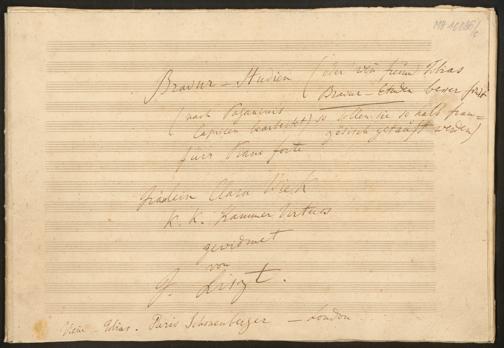 MH 16886/c
Bravur – Studien (oder wenn Freund Tobias
Bravur – Etuden besser
(nach Paganinis
Capricen bearbeitet) so sollen sie so halb fran-
zösisch getauft werden)
fürs Piano forte
Fräulein Clara Wieck
K. K. Kammer Virtuos
gewidmet
von
F. Liszt.
Wien – Tobias. Paris Schonenberger – London